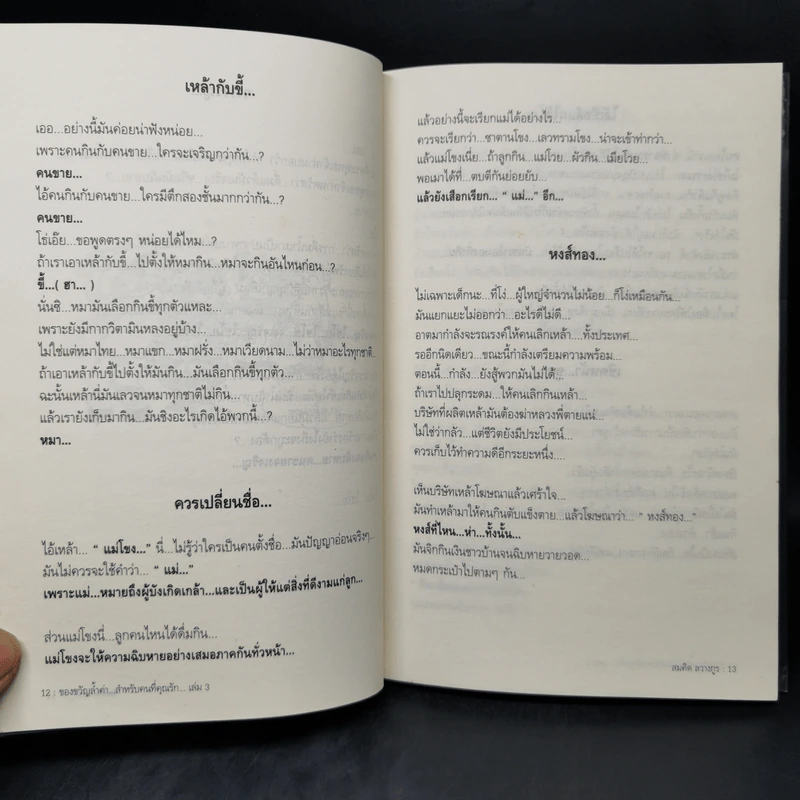 เหล้ากับขี้...
เออ...อย่างนี้มันค่อยน่าฟังหน่อย...
เพราะคนกินกับคนขาย...ใครจะเจริญกว่ากัน...?
คนขาย...
ไอ้คนกินกับคนขาย...ใครมีตึกสองชั้นมากกว่ากัน...?
คนขาย...
โธ่เอ๊ย...ขอพูดตรงๆ หน่อยได้ไหม...?
ถ้าเราเอาเหล้ากับขี้...ไปตั้งให้หมากิน...หมาจะกินอันไหนก่อน...?
ขี้...( ฮา... )
นั่นซิ...หมามันเลือกกินขี้ทุกตัวแหละ...
เพราะยังมีกากวิตามินหลงอยู่บ้าง...
ไม่ใช่แต่หมาไทย...หมาแขก...หมาฝรั่ง...หมาเวียดนาม...ไม่ว่าหมาอะไรทุกชาติ
ถ้าเอาเหล้ากับขี้ไปตั้งให้มันกิน...มันเลือกกินขี้ทุกตัว...
ฉะนั้นเหล้านี่มันเลวจนหมาทุกชาติไม่กิน...
แล้วเรายังเก็บมากิน...มันชิงอะไรเกิดไอ้พวกนี้...?
หมา...
ควรเปลี่ยนชื่อ...
ไอ้เหล้า... “ แม่โขง...” นี่...ไม่รู้ว่าใครเป็นคนตั้งชื่อ...มันปัญญาอ่อนจริงๆ..
มันไม่ควรจะใช้คำว่า... “ แม่...”
เพราะแม่...หมายถึงผู้บังเกิดเกล้า...และเป็นผู้ให้แต่สิ่งที่ดีงามแก่ลูก...
ส่วนแม่โขงนี่...ลูกคนไหนได้ดื่มกิน...
แม่โขงจะให้ความฉิบหายอย่างเสมอภาคกันทั่วหน้า...
12 : ของขวัญล้ำค่า...สำหรับคนที่คุณรัก... เล่ม 3
แล้วอย่างนี้จะเรียกแม่ได้อย่างไร...
ควรจะเรียกว่า...ซาตานโขง...เลวทรามโขง...น่าจะเข้าท่ากว่า...
แล้วแม่โขงเนี่ย...ถ้าลูกกิน...แม่โวย...ผัวกิน...เมียโวย...
พอเมาได้ที่...ตบตีกันย่อยยับ...
แล้วยังเสือกเรียก... “ แม่...” อีก...
หงส์ทอง...
ไม่เฉพาะเด็กนะ...ที่โง่...ผู้ใหญ่จำนวนไม่น้อย...ก็โง่เหมือนกัน...
มันแยกแยะไม่ออกว่า...อะไรดีไม่ดี...
อาตมากำลังจะรณรงค์ให้คนเลิกเหล้า....ทั้งประเทศ...
รออีกนิดเดียว...ขณะนี้กำลังเตรียมความพร้อม...
ตอนนี้...กำลัง...ยังสู้พวกมันไม่ได้...
ถ้าเราไปปลุกระดม...ให้คนเลิกกินเหล้า...
บริษัทที่ผลิตเหล้ามันต้องฆ่าหลวงพี่ตายแน่...
ไม่ใช่ว่ากลัว...แต่ชีวิตยังมีประโยชน์...
ควรเก็บไว้ทำความดีอีกระยะหนึ่ง....
เห็นบริษัทเหล้าโฆษณาแล้วเศร้าใจ...
มันทำเหล้ามาให้คนกินตับแข็งตาย...แล้วโฆษณาว่า... “ หงส์ทอง...”
หงส์ที่ไหน...ห่า...ทั้งนั้น...
มันจิกกินเงินชาวบ้านจนฉิบหายวายวอด...
หมดกระเป๋าไปตามๆ กัน...
สมคิด ลวางกูร : 13